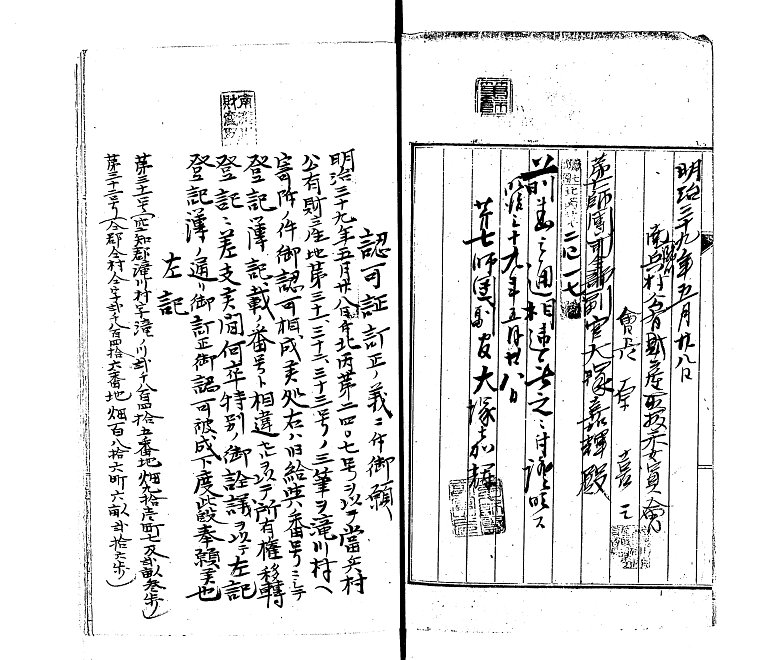 明治三十九年五月廿八日
南瀧川兵村公有財産取扱委員會
會長 原 喜三
第七師團副官大塚嘉輝殿
二〇一七
前書之通相違無之ニ付証明ス
明治三十九年五月廿八日
第七師團副官大塚嘉輝
認可証訂正ノ義ニ付御願
明治三十九年五月廿八日付北丙第二四〇七号ヲ以テ當兵村
公有財産地第三十一、三十二、三十三号ノ三筆ヲ滝川村ヘ
寄附ノ件御認可相成候処右ハ旧給与ノ番号ニシテ
登記簿記載ノ番号ト相違セルヲ以テ所有権移轉
登記ニ差支候間何卒特別ノ御詮議ヲ以テ左記
登記簿ノ通リ御訂正御認可被成下度此段奉願候也
左記
第三十二号（空知郡滝川村字滝ノ川弐千八百四拾五番地 畑九拾壱町七反弐畝叁歩）
第三十三号（仝郡仝村仝字弐千八百四拾六番地 畑百八拾六町六畝弐拾六歩）